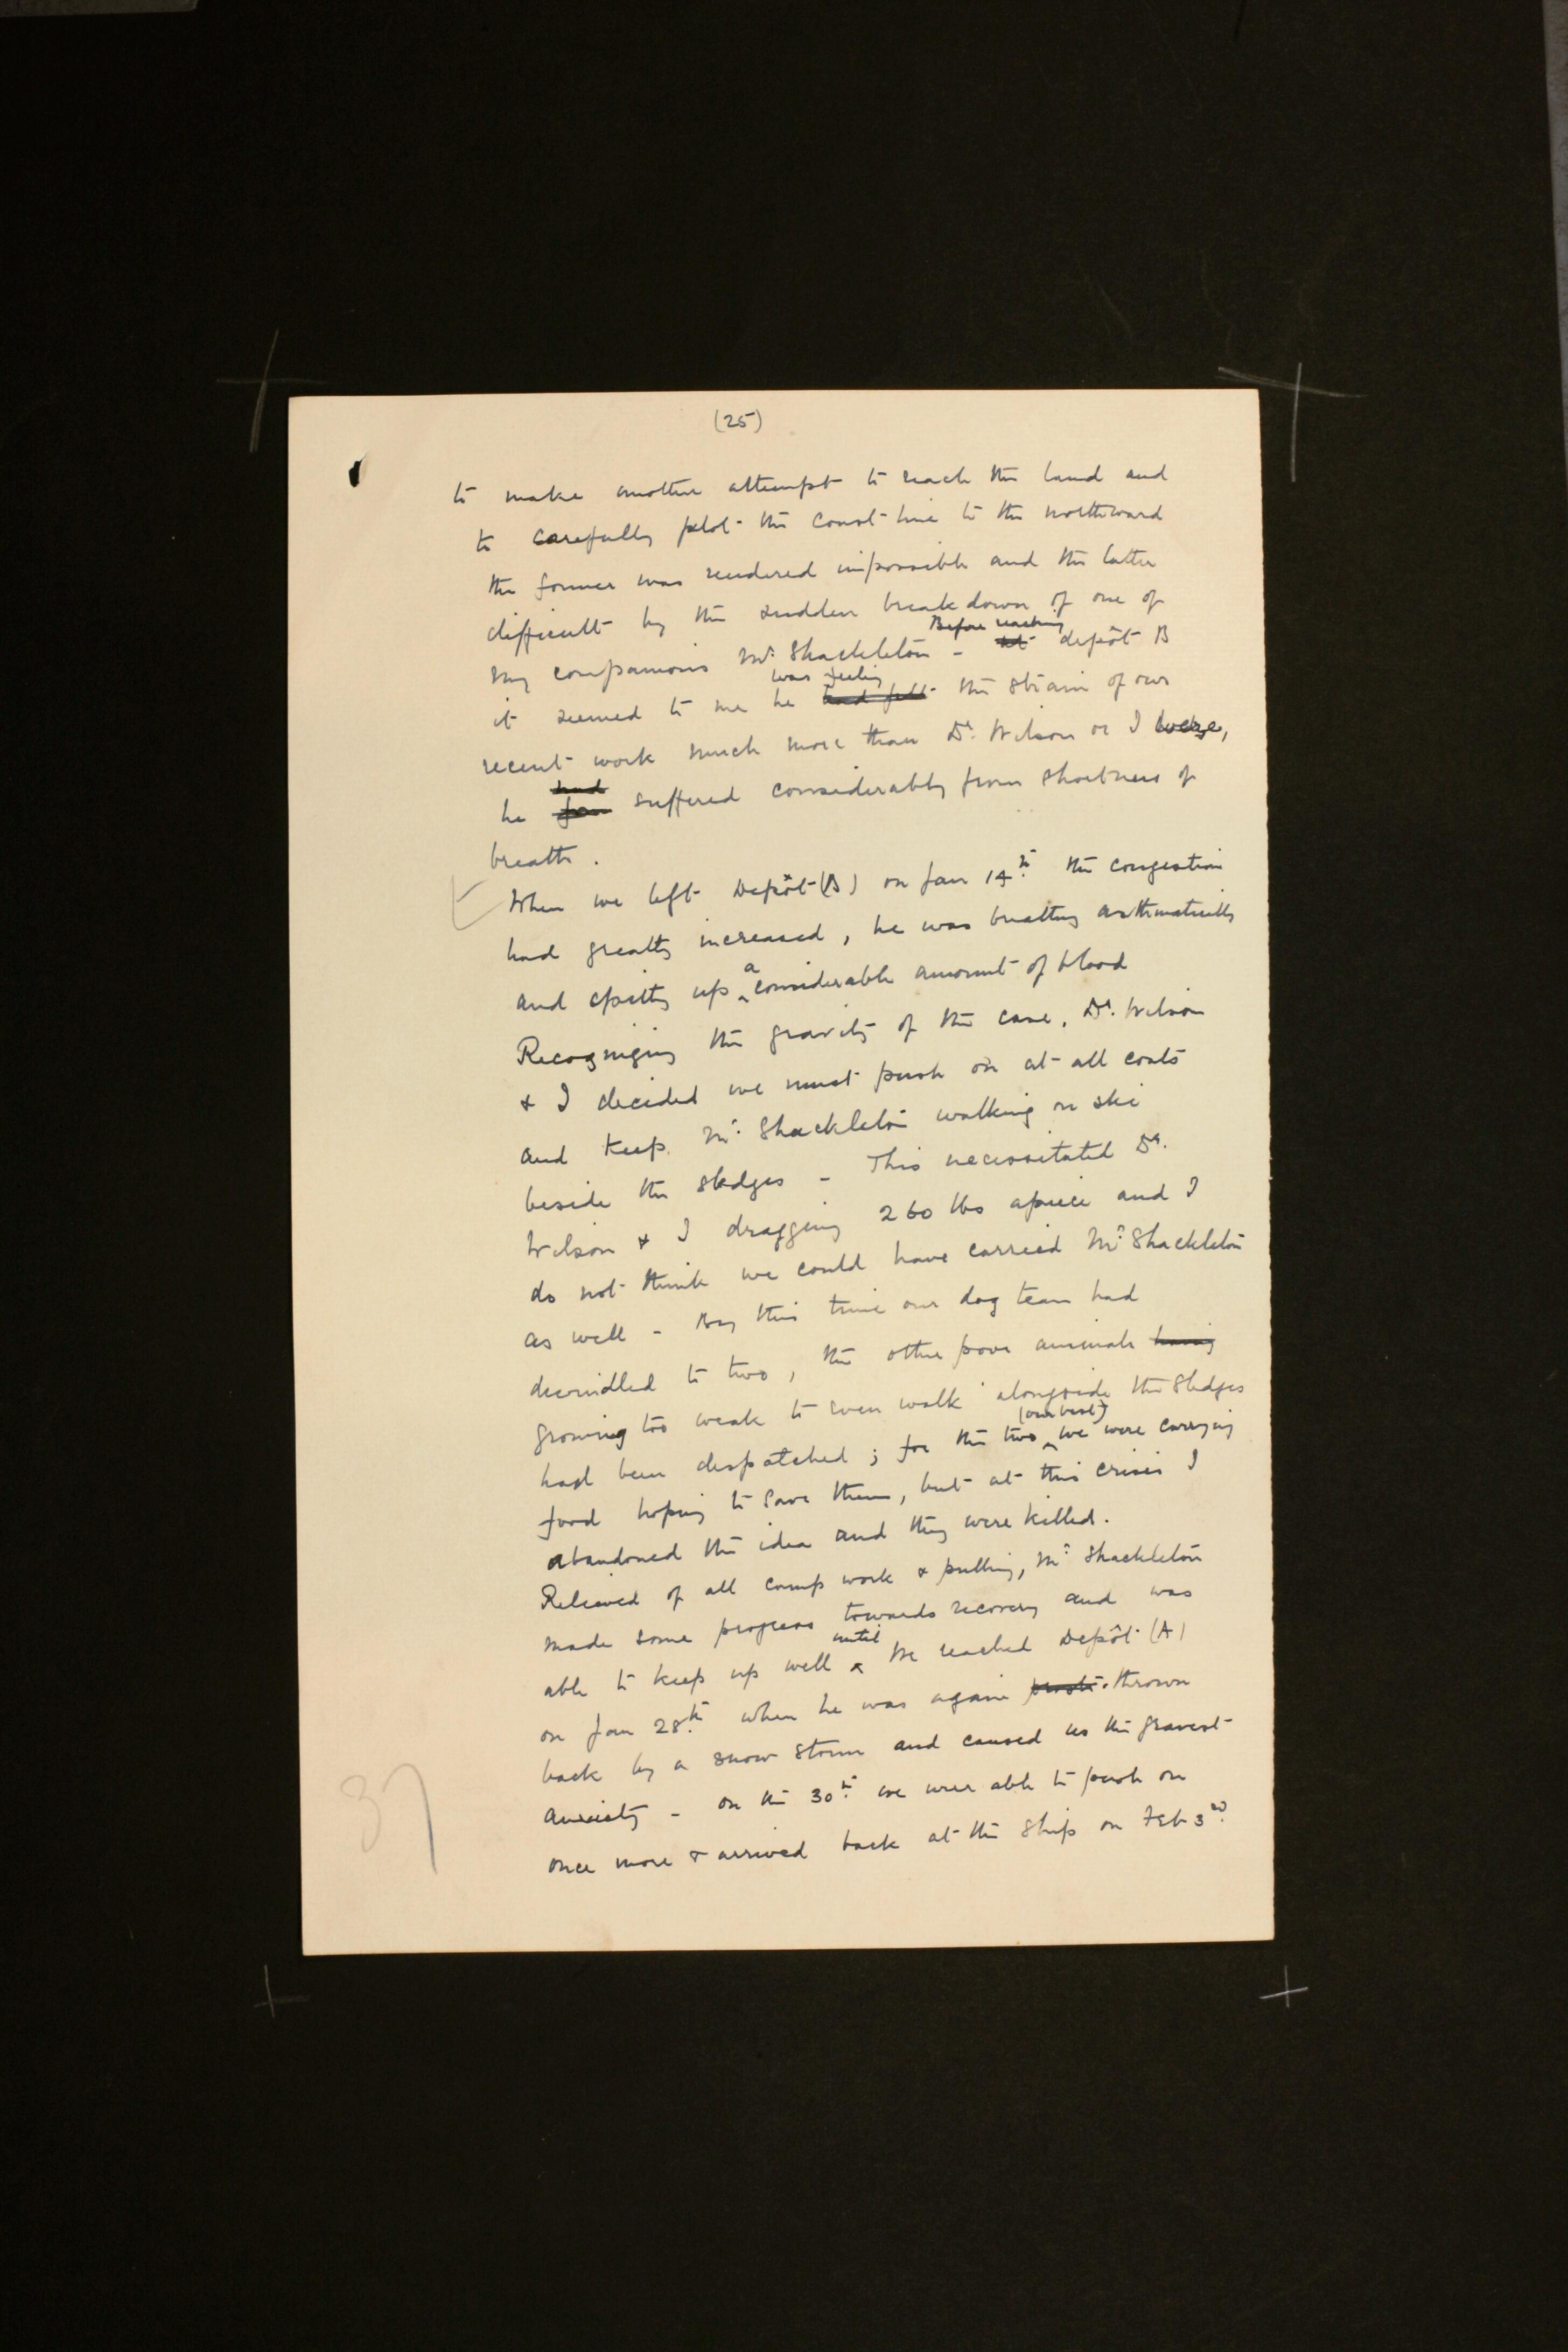 (25)
to make another attempt to reach the land and
to carefully plot the coast-line to the northward
the former was rendered impossible and the latter
difficult by the sudden breakdown of one of
Before reaching
my companions Mr. Shackleton - at depôt B
was feeling
it seemed to me he had felt the strain of our
recent work much more than Dr. Wilson or I were,
had
he suffered considerably from shortness of
breath.
When we left Depôt (B) on Jan 14th. the congestion
had greatly increased, he was breathing asthmatically
a
and spitting up ^ considerable amount of blood
Recognizing the gravity of the case, Dr. Wilson
& I decided we must push on at all costs
and keep Mr. Shackleton walking on ski
beside the sledges - This necessitated Dr.
Wilson & I dragging 260 lbs apiece and I
do not think we could have carried Mr. Shackleton
as well - By this time our dog team had
dwindled to two, the other poor animals having
growing too weak to even walk alongside the sledges
(our best)
had been despatched; for the two ^ we were carrying
food hoping to save them, but at this crisis I
abandoned the idea and they were killed.
Relieved of all camp work & pulling, Mr. Shackleton
made some progress towards recovery and was
until
able to keep up well ^ we reached Depôt (A)
on Jan 28th. when he was again thrown
back by a snow storm and caused us the gravest
anxiety - On the 30th. we were able to push on
once more & arrived back at the ship on Feb 3rd.
37